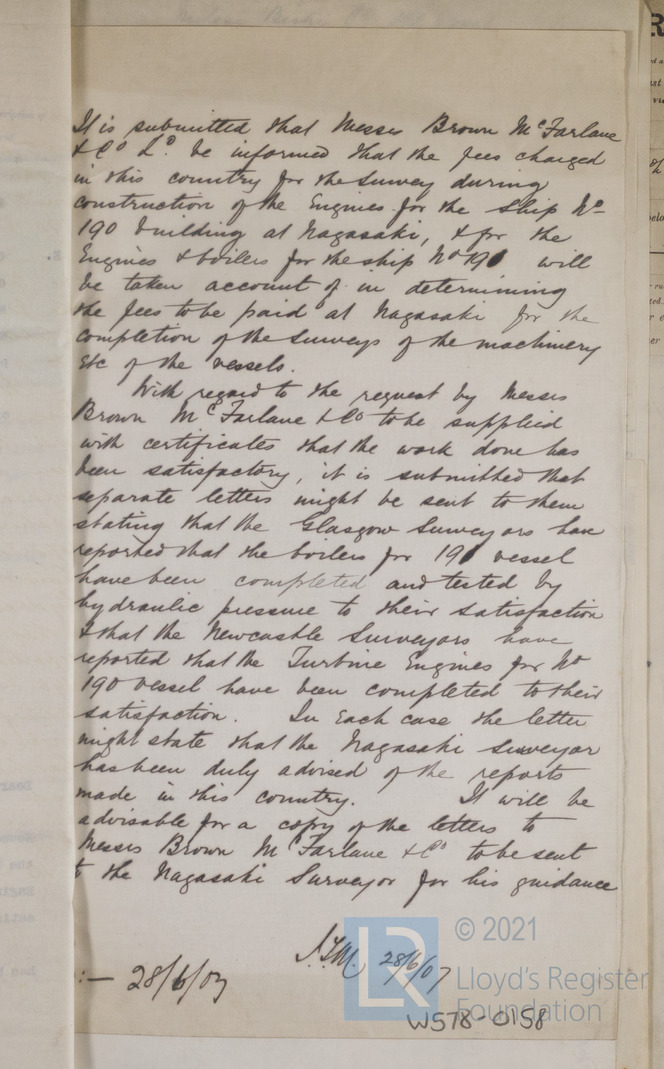 It is submitted that Messrs Brown McFarlane
& Co Ld. be informed that the fees charged
in this country for the survey during
construction of the Engines for the ship No
190 building at Nagasaki, & for the
Engines & boilers for the ship No 191 will
be taken account of in determining
the fees to be paid at Nagasaki for the
completion of the surveys of the machinery
etc of the vessels.
With regard to the request by Messrs
Brown McFarlane & Co to be supplied
with certificates that the work done has
been satisfactory, it is submitted that
separate letters might be sent to them
stating that the Glasgow Surveyors have
reported that the boilers for 191 vessel
have been completed and tested by
hydraulic pressure to their satisfaction
& that the Newcastle Surveyors have
reported that the Turbine Engines for No
190 vessel have been completed to their
satisfaction. In each case the letter
might state that the Nagasaki Surveyor
has been duly advised of the reports
made in this country. It will be
advisable for a copy of the letters to
Messrs Brown McFarlane & Co to be sent
to the Nagasaki Surveyor for his guidance
28/6/07
:— 28/6/07
© 2021
LR
Lloyd's Register
Foundation
W578-0158